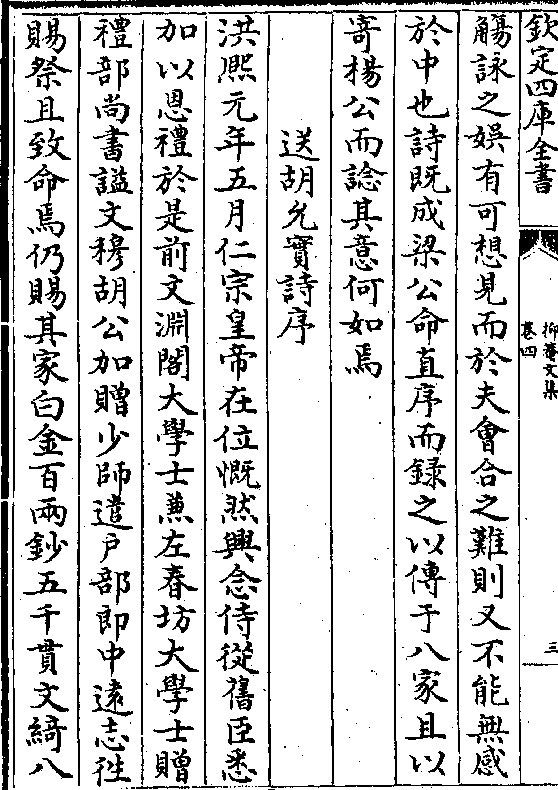 欽定四庫全書
抑菴文集
卷四
三
觴詠之娛有可想見而於夫會合之難則又不能無感
於中也詩既成梁公命直序而録之以傳于八家且以
寄楊公而諗其意何如焉
送胡允寶詩序
洪熈元年五月仁宗皇帝在位慨然興念侍從舊臣悉
加以恩禮於是前文淵閣大學士兼左春坊大學士贈
禮部尚書諡文穆胡公加贈少師遣戶部郎中逺志徃
賜祭且致命焉仍賜其家白金百兩鈔五千貫文綺八